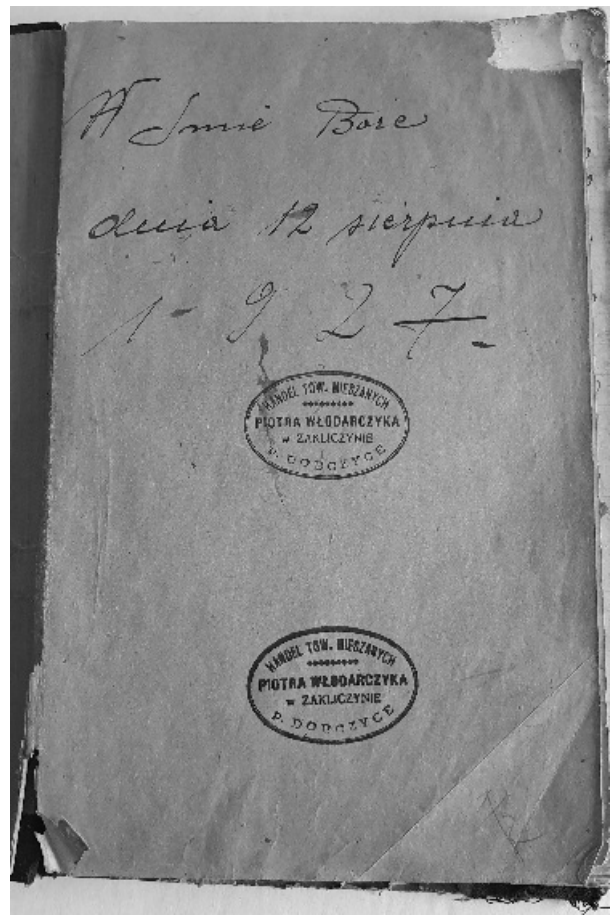 W Imię Boże
dnia 12 sierpnia
1927
HANDEL TOW. MIESZANYCH
PIOTRA WŁODARCZYKA
w ZAKLICZYNIE
P. DOBCZYCE
HANDEL TOW. MIESZANYCH
PIOTRA WŁODARCZYKA
w ZAKLICZYNIE
P. DOBCZYCE